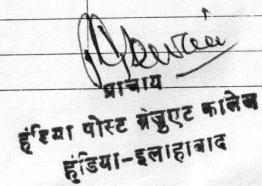 प्राचार्य
हंडिया पोस्ट ग्रेजुएट कालेज
हंडिया-इलाहाबाद